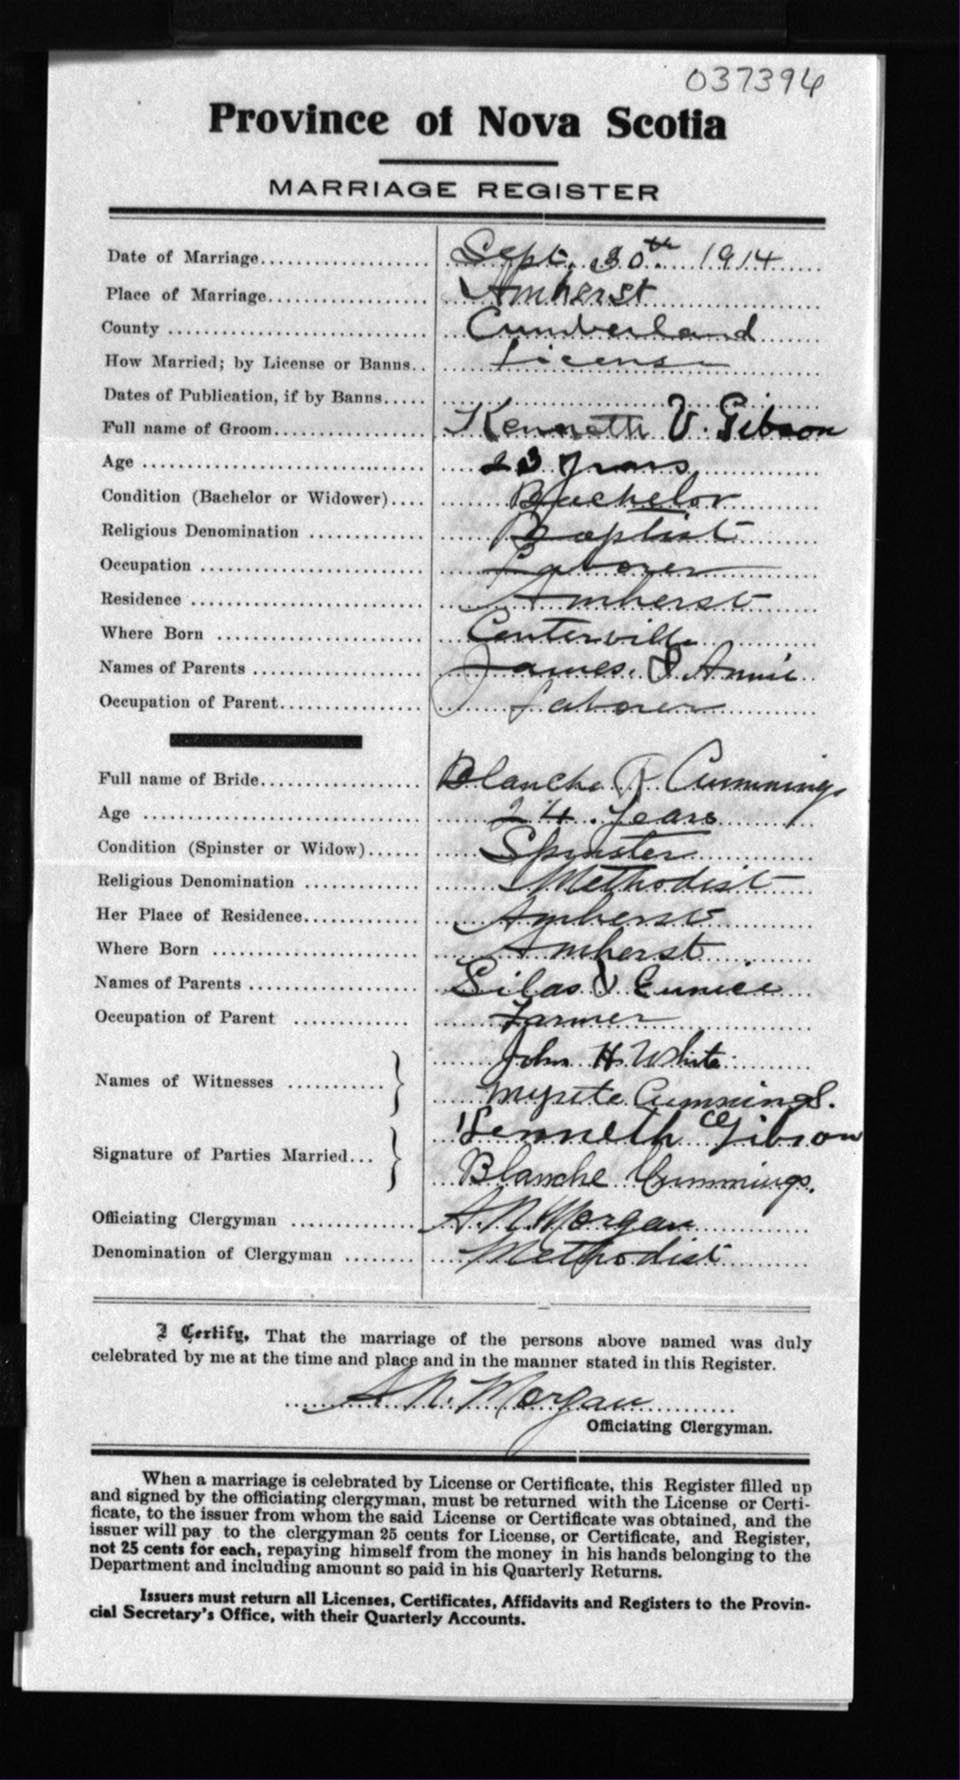 037394
Province of Nova Scotia
MARRIAGE REGISTER
Date of Marriage Sept. 30th 1914
Place of Marriage Amherst
County Cumberland
How Married; by License or Banns License
Dates of Publication, if by Banns
Full name of Groom Kenneth V. Gibson
Age 23 years
Condition (Bachelor or Widower) Bachelor
Religious Denomination Baptist
Occupation Laborer
Residence Amherst
Where Born Centerville
Names of Parents James & Annie
Occupation of Parent Laborer
Full name of Bride Blanche R Cummings
Age 24 years
Condition (Spinster or Widow) Spinster
Religious Denomination Methodist
Her Place of Residence Amherst
Where Born Amherst
Names of Parents Silas & Eunice
Occupation of Parent Farmer
John H. White
Names of Witnesses
Cummings.
Kenneth Gibson
Signature of Parties Married
Blanche Cummings.
Officiating Clergyman A. N. Morgan
Denomination of Clergyman Methodist
I Certify, That the marriage of the persons above named was duly
celebrated by me at the time and place and in the manner stated in this Register.
A N. Morgan
Officiating Clergyman.
When a marriage is celebrated by License or Certificate, this Register filled up
and signed by the officiating clergyman, must be returned with the License or Certi-
ficate, to the issuer from whom the said License or Certificate was obtained, and the
issuer will pay to the clergyman 25 cents for License, or Certificate, and Register,
not 25 cents for each, repaying himself from the money in his hands belonging to the
Department and including amount so paid in his Quarterly Returns.
Issuers must return all Licenses, Certificates, Affidavits and Registers to the Provin-
cial Secretary's Office, with their Quarterly Accounts.